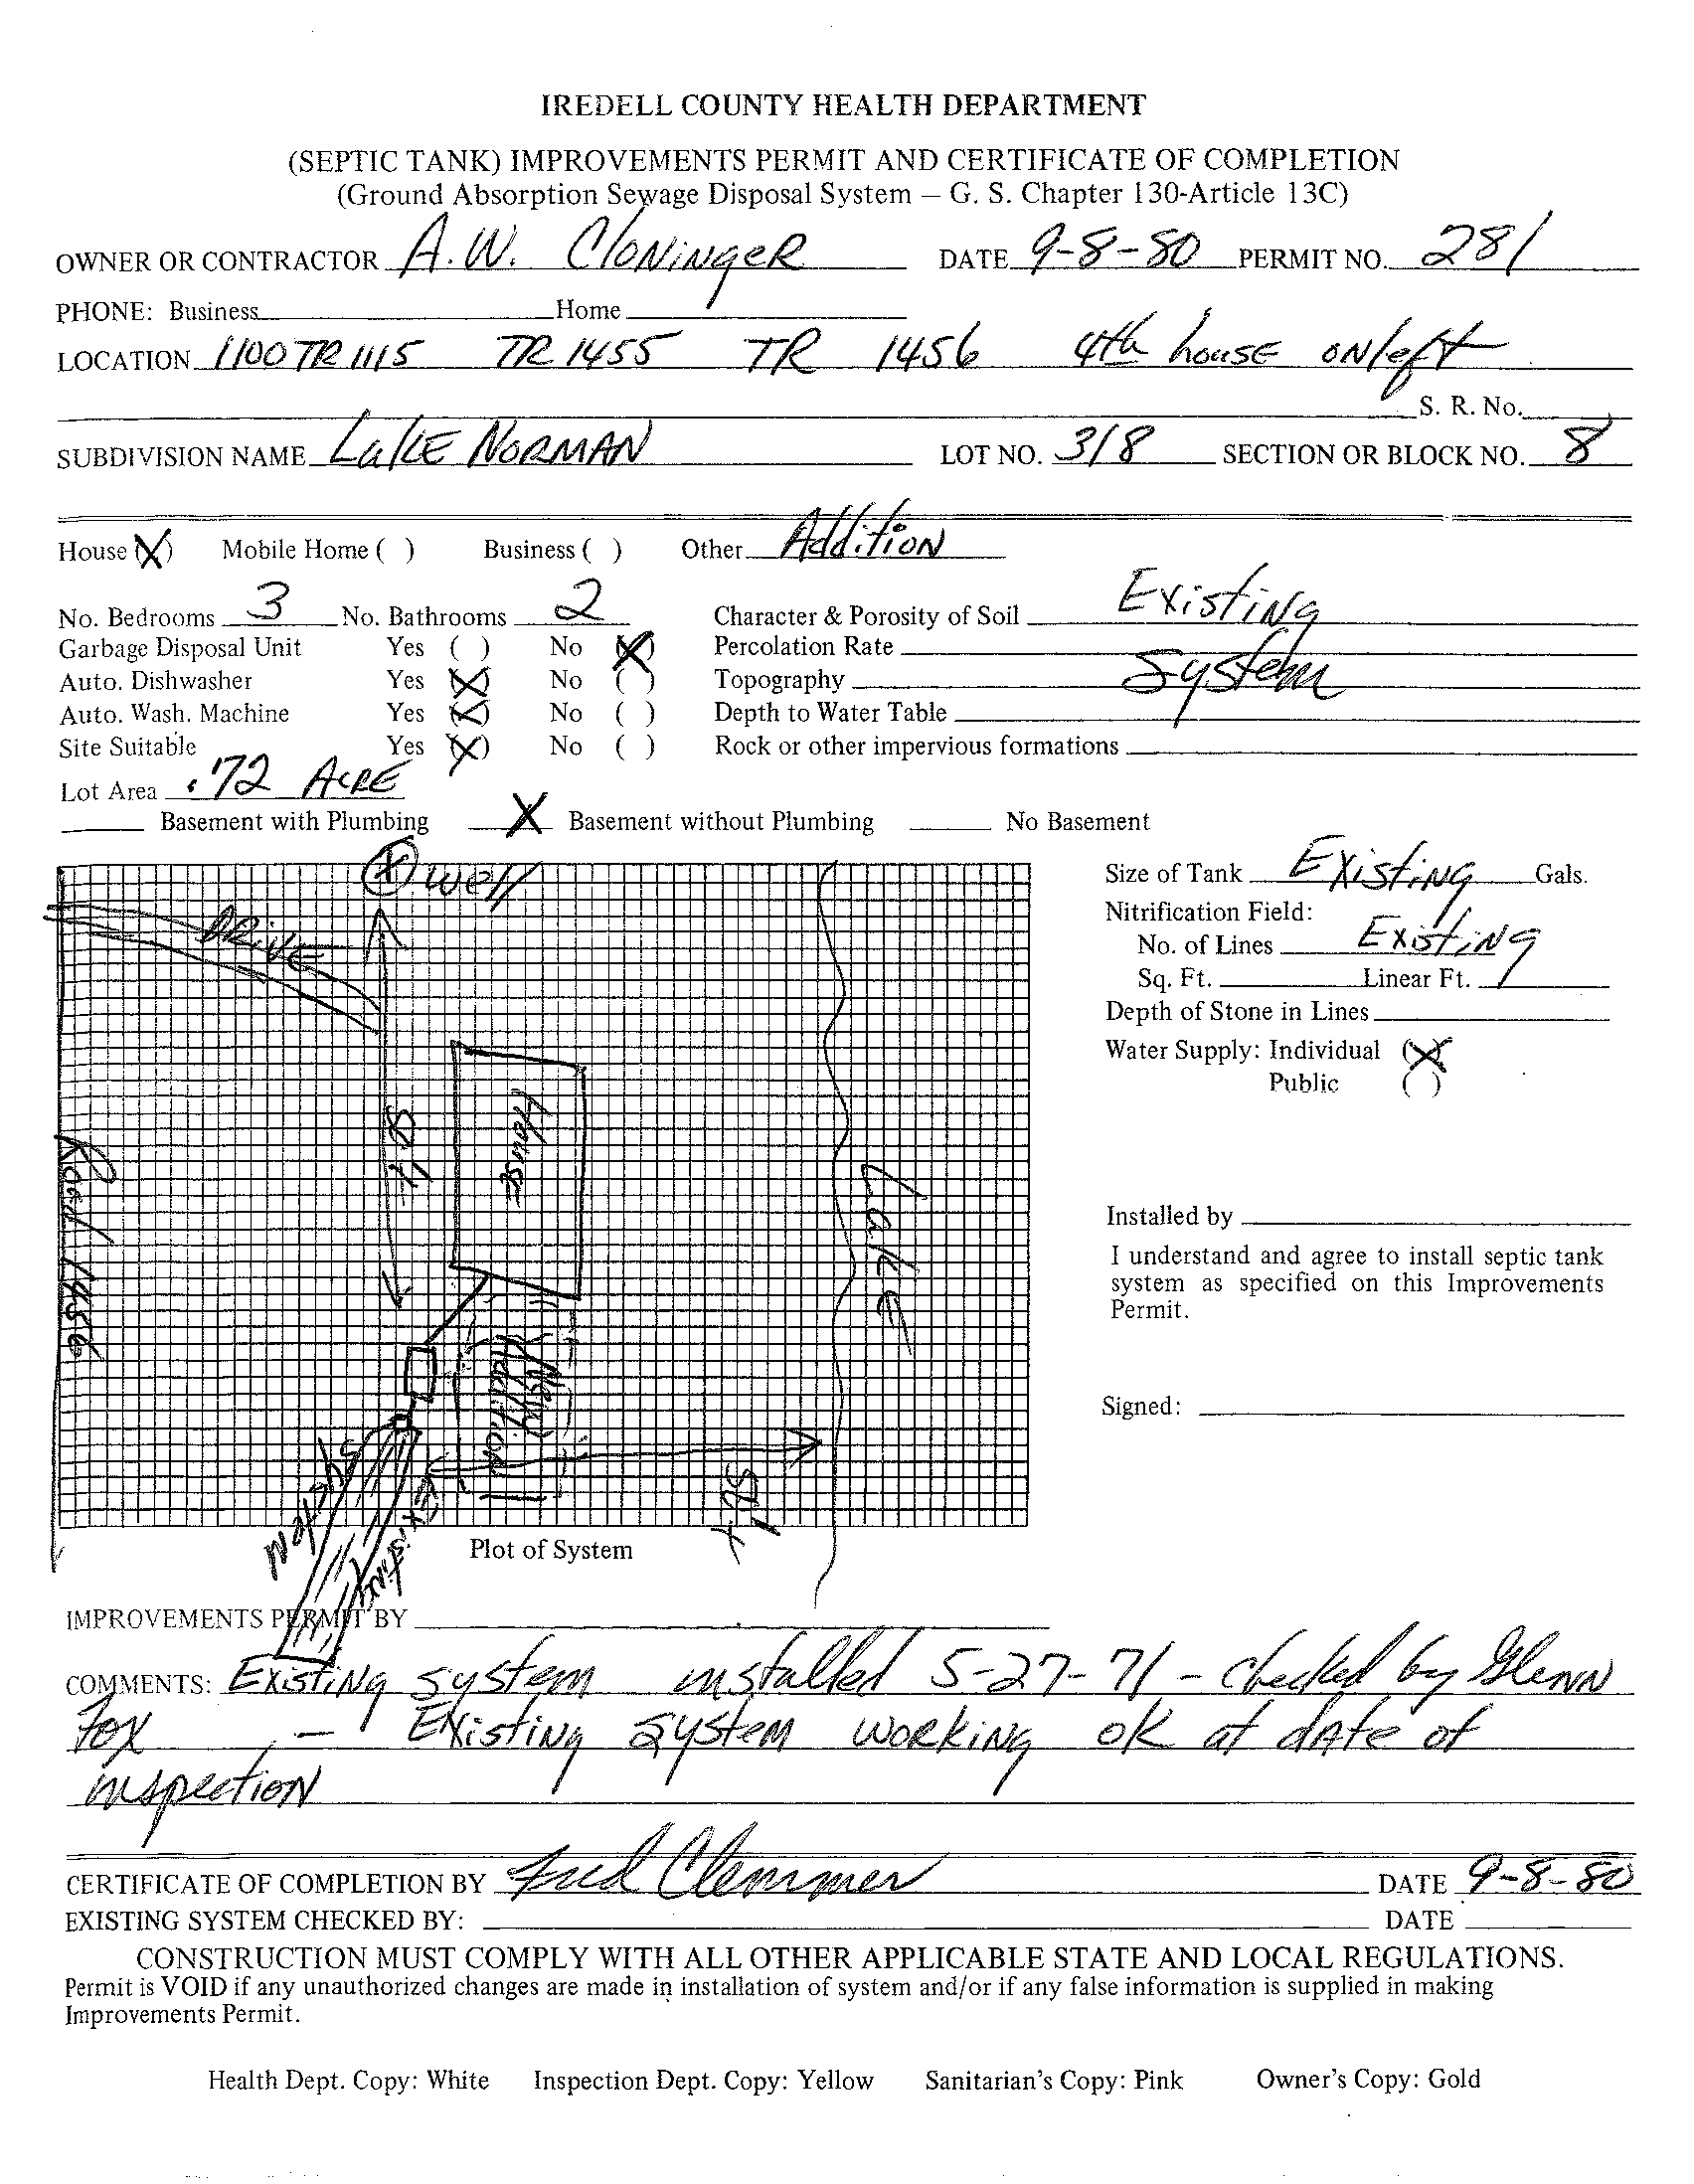 IREDELL COUNTY HEALTH DEPARTMENT
(SEPTIC TANK) IMPROVEMENTS PERMIT AND CERTIFICATE OF COMPLETION
(Ground Absorption Sewage Disposal System — G. S. Chapter 130-Article 13C)
OWNER OR CONTRACTOR A.W. CloNiNgeR DATE 9-8-80 PERMIT NO. 281
PHONE: Business Home
LOCATION 1100 TR 1115 TR 1455 TR 1456 4th house ON left
S. R. No.
SUBDIVISION NAME LaKE NORMAN LOT NO. 318 SECTION OR BLOCK NO. 8
House (X) Mobile Home ( ) Business ( ) Other Addition
No. Bedrooms 3 No. Bathrooms 2 Character & Porosity of Soil Existing
Garbage Disposal Unit Yes ( ) No (X) Percolation Rate
Auto. Dishwasher Yes (X) No ( ) Topography System
Auto. Wash. Machine Yes (X) No ( ) Depth to Water Table
Site Suitable Yes (X) No ( ) Rock or other impervious formations
Lot Area .72 ACRE
Basement with Plumbing X Basement without Plumbing No Basement
X well
DRIVE
House
Lake
Road 1456
New Addition
Existing System
Plot of System
Size of Tank Existing Gals.
Nitrification Field:
No. of Lines Existing
Sq. Ft. Linear Ft.
Depth of Stone in Lines
Water Supply: Individual (X)
Public ( )
Installed by
I understand and agree to install septic tank
system as specified on this Improvements
Permit.
Signed:
IMPROVEMENTS PERMIT BY
COMMENTS: Existing system installed 5-27-71 - checked by Glenn
Fox - Existing system working ok at date of
inspection
CERTIFICATE OF COMPLETION BY Fred Clemmer DATE 9-8-80
EXISTING SYSTEM CHECKED BY: DATE
CONSTRUCTION MUST COMPLY WITH ALL OTHER APPLICABLE STATE AND LOCAL REGULATIONS.
Permit is VOID if any unauthorized changes are made in installation of system and/or if any false information is supplied in making
Improvements Permit.
Health Dept. Copy: White Inspection Dept. Copy: Yellow Sanitarian's Copy: Pink Owner's Copy: Gold